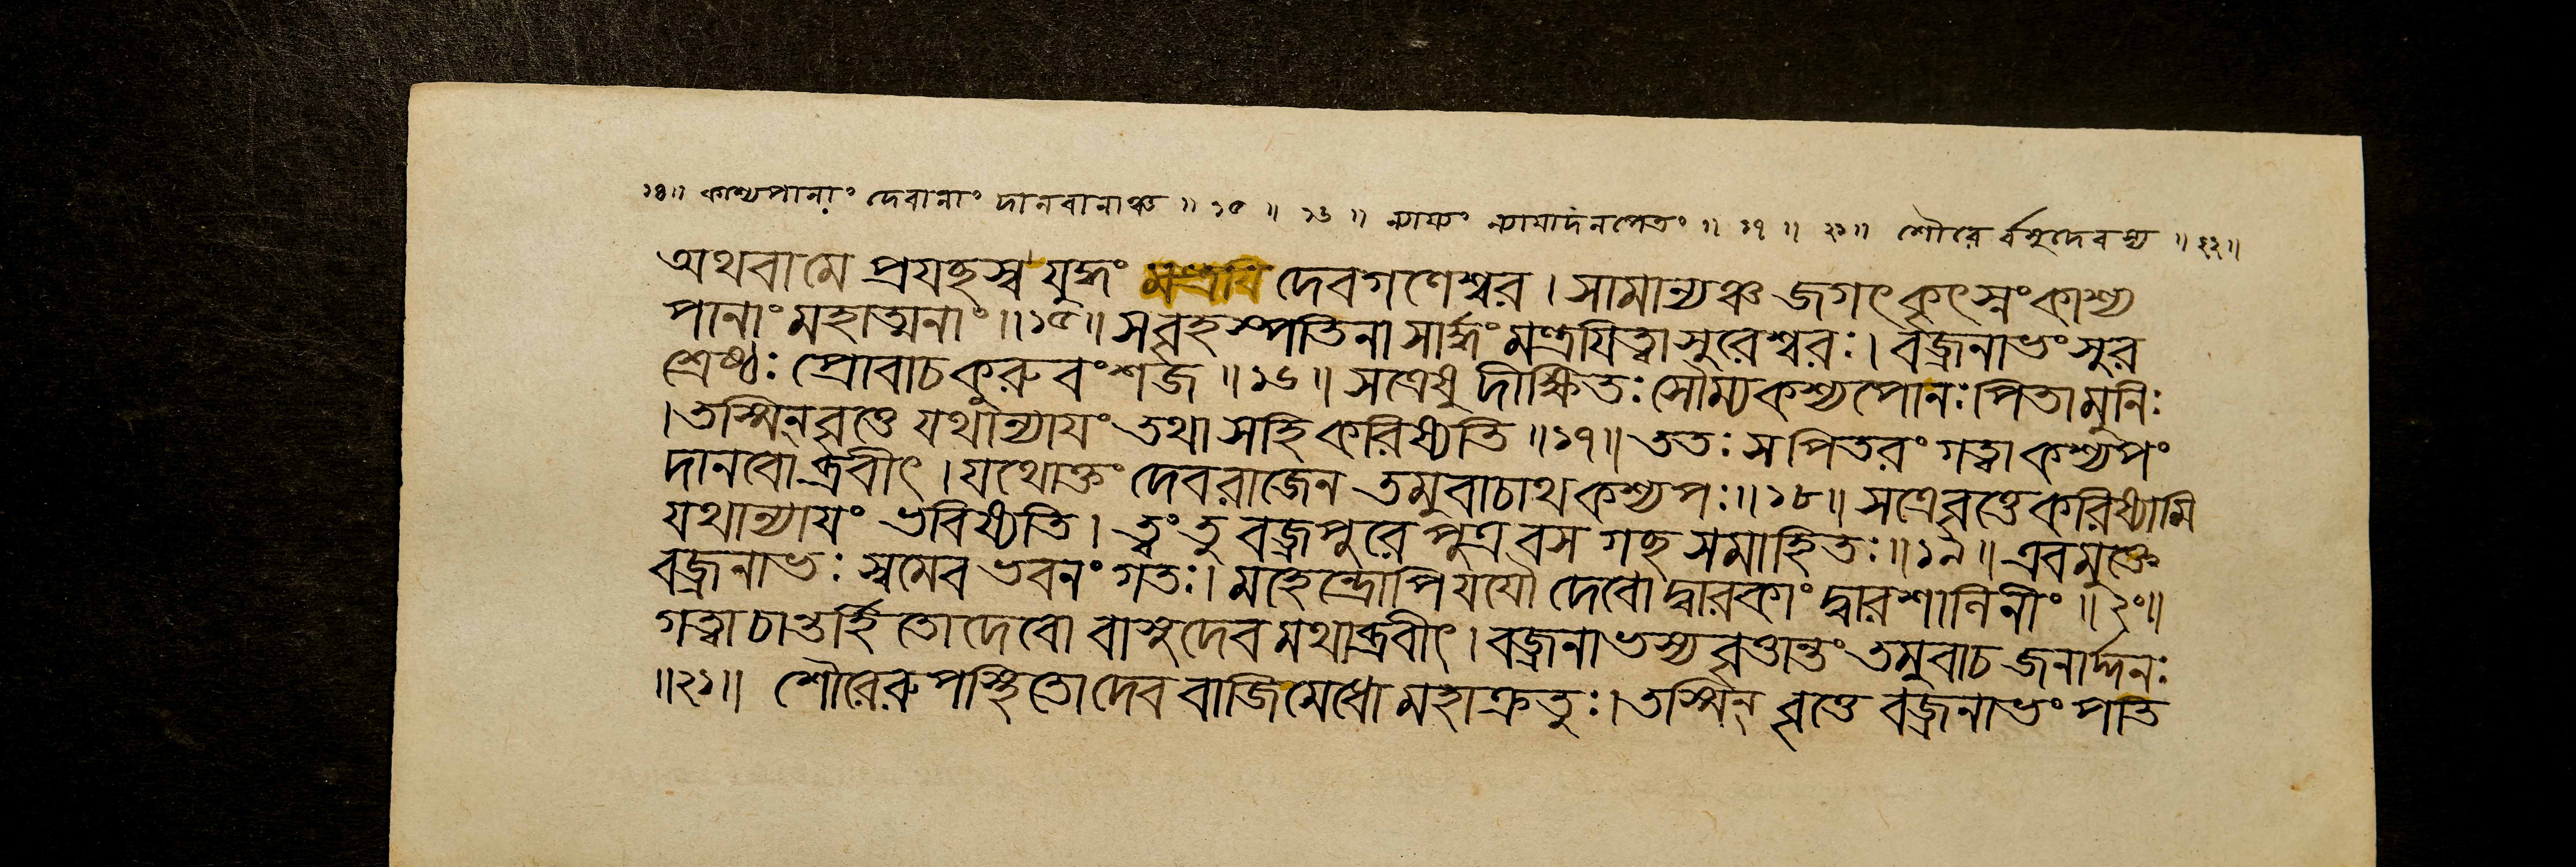 ১৪॥ কাশ্যপানাং দেবানাং দানবানাঞ্চ ॥ ১৫ ॥ ১৬ ॥ ন্যায্যং ন্যায়াদনপেতং ॥ ১৭ ॥ ২১॥ শৌরে র্বসুদেবস্য ॥ ২২॥
অথবা মে প্রযচ্ছস্ব যুদ্ধং দেবগণেশ্বর । সামান্যঞ্চ জগৎ কৃৎস্নং কাশ্য
পানাং মহাত্মনাং ॥১৫॥ স বৃহস্পতিনা সার্দ্ধং মন্ত্রযিত্বা সুরেশ্বরঃ । বজ্রনাভং সুর
শ্রেষ্ঠঃ প্রোবাচ কুরুবংশজ ॥ ১৬ ॥ সত্রেষু দীক্ষিতঃ সৌম্য কশ্যপো নঃ পিতা মুনিঃ
। তস্মিন্ বৃত্তে যথান্যাযং তথা স হি করিষ্যতি ॥১৭॥ ততঃ স পিতরং গত্বা কশ্যপং
দানবো ব্রবীৎ । যথোক্তং দেবরাজেন তমুবাচাথ কশ্যপঃ ॥ ১৮ ॥ সত্রে বৃত্তে করিষ্যামি
যথান্যাযং ভবিষ্যতি । ত্বং তু বজ্রপুরে পুত্র বস গচ্ছ সমাহিতঃ ॥ ১৯ ॥ এবমুক্তে
বজ্রনাভঃ স্বমেব ভবনং গতঃ । মহেন্দ্রোপি যযৌ দেবো দ্বারকাং দ্বারশালিনীং ॥ ২০॥
গত্বা চান্তর্হিতো দেবো বাসুদেব মথাব্রবীৎ । বজ্রনাভস্য বৃত্তান্তং তমুবাচ জনার্দ্দনঃ
॥২১॥ শৌরেরুপস্থিতো দেব বাজিমেধো মহাক্রতুঃ । তস্মিন্ বৃত্তে বজ্রনাভং পাতি